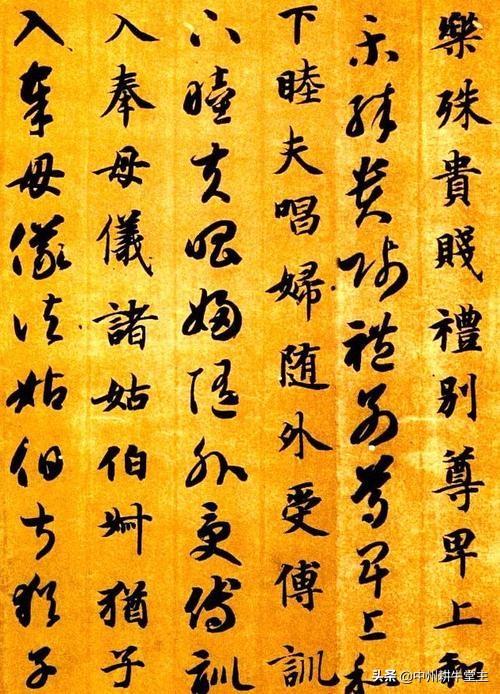 樂殊貴賤禮別尊卑上和
樂殊貴賤禮別尊卑上和
下睦夫唱婦随外受傅訓
下睦夫唱婦随外受傅訓
入奉母儀諸姑伯叔猶子
入奉母儀諸姑伯叔猶子
头条 @中州耕牛堂主